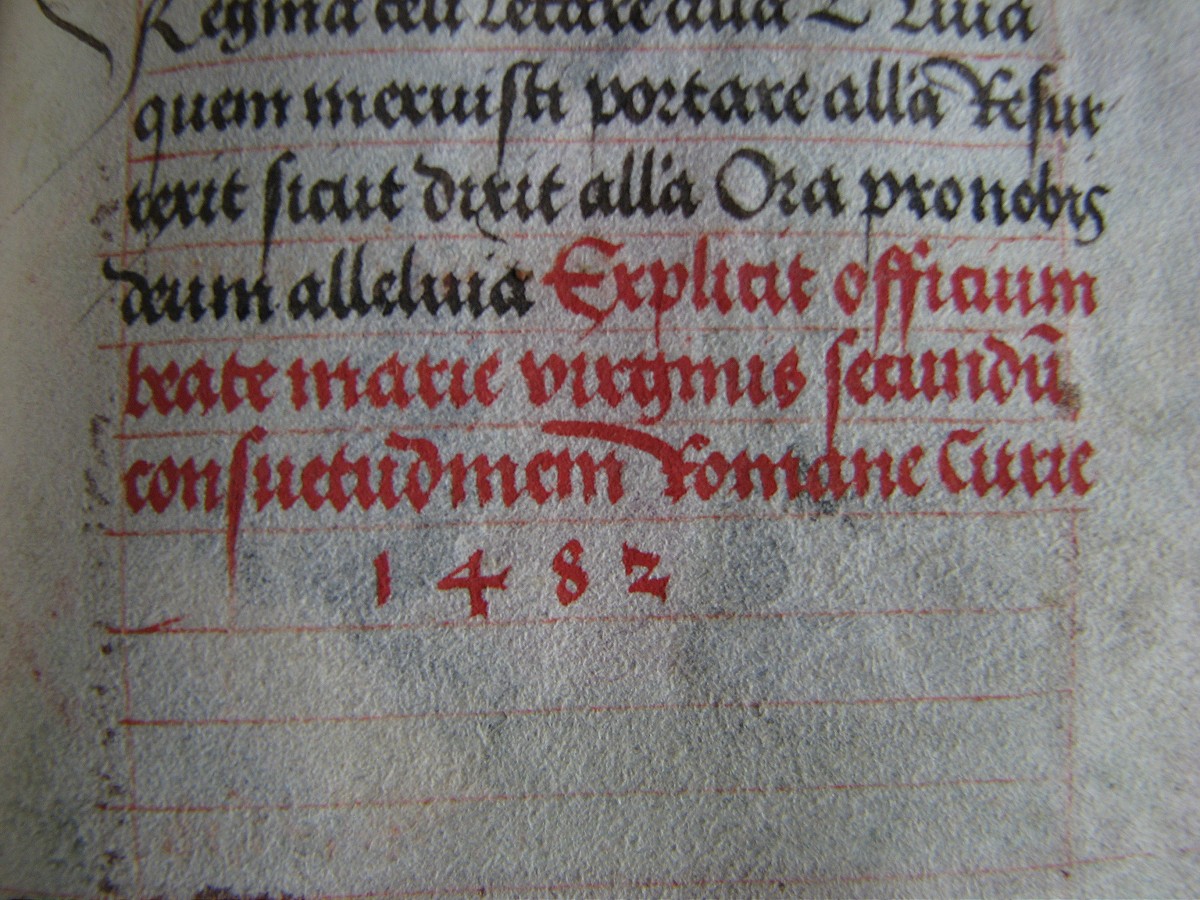 Regina celi letare alla Quia
quem meruisti portare alla Resur
rexit sicut dixit alla Ora pro nobis
deum alleluia Explicit officium
beate marie virginis secundū
consuetudinem Romane Curie
1482